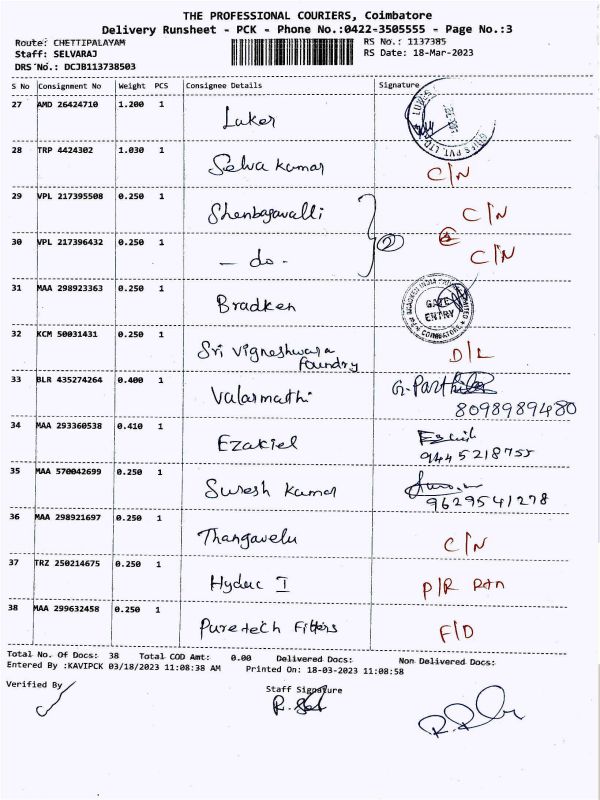 THE PROFESSIONAL COURIERS, Coimbatore
Delivery Runsheet - PCK - Phone No.:0422-3505555 - Page No.:3
Route: CHETTIPALAYAM RS No.: 1137385
Staff: SELVARAJ RS Date: 18-Mar-2023
DRS No.: DCJB113738503
S No Consignment No Weight PCS Consignee Details Signature
27 AMD 26424710 1.200 1 Luker
28 TRP 4424302 1.030 1 Selva Kumar C/N
29 VPL 217395508 0.250 1 Shenbagavalli C/N
30 VPL 217396432 0.250 1 - do - 2 C/N
31 MAA 298923363 0.250 1 Bradken GATE ENTRY COIMBATORE
32 KCM 50031431 0.250 1 Sri Vigneshwara Foundry D/L
33 BLR 435274264 0.400 1 Valarmathi 8098989480
34 MAA 293360538 0.410 1 Ezakiel 9445218755
35 MAA 570042699 0.250 1 Suresh Kumar 9629541278
36 MAA 298921697 0.250 1 Thangavelu C/N
37 TRZ 250214675 0.250 1 Hyduc I P/R
38 MAA 299632458 0.250 1 Puretech Filters F/D
Total No. Of Docs: 38 Total COD Amt: 0.00 Delivered Docs: Non Delivered Docs:
Entered By :KAVIPCK 03/18/2023 11:08:38 AM Printed On: 18-03-2023 11:08:58
Verified By
Staff Signature